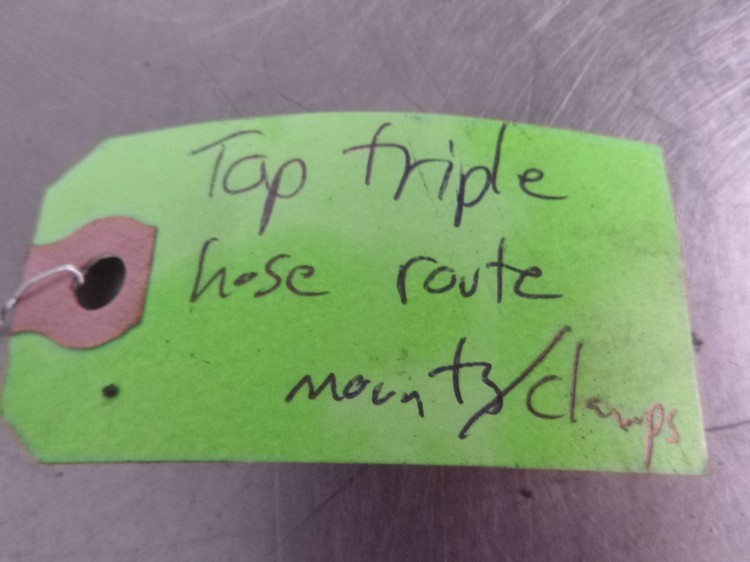 Top triple
hose route
mounts/clamps